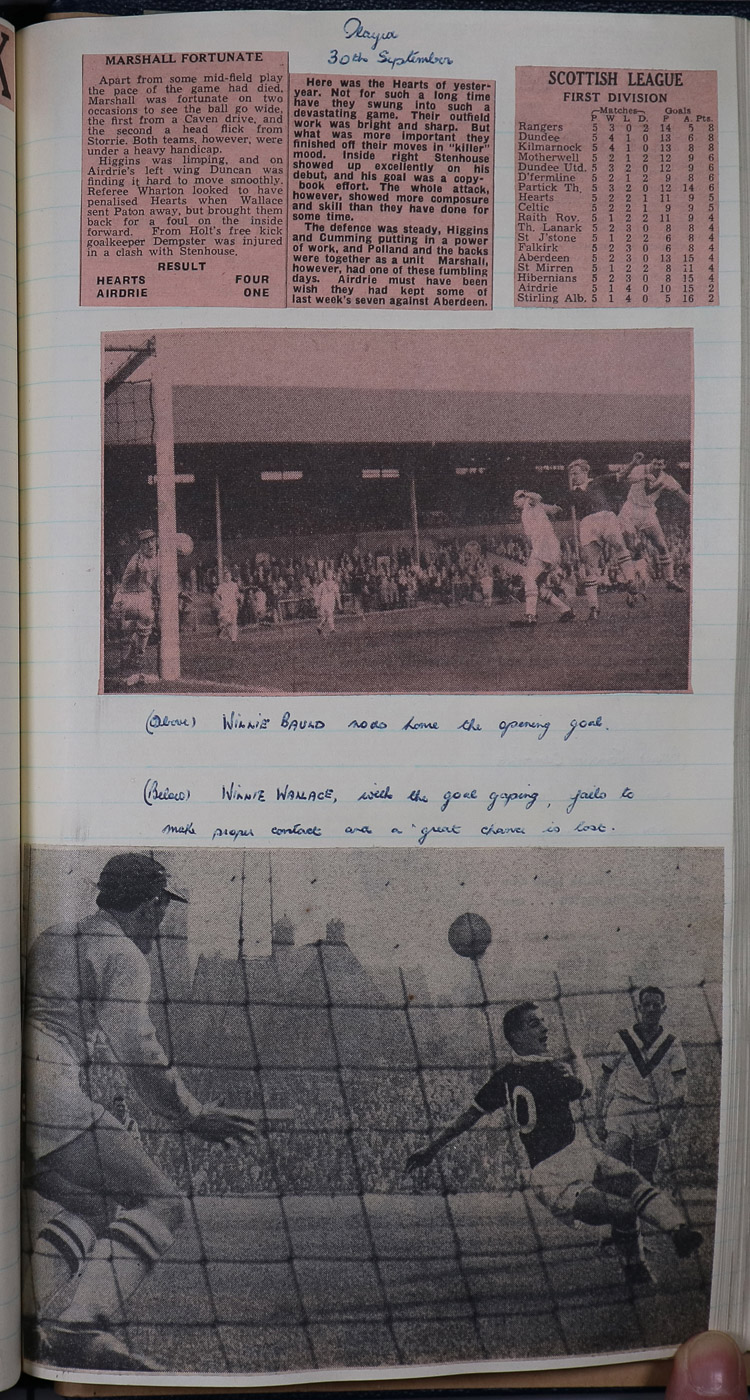 Played
30th September
MARSHALL FORTUNATE
Apart from some mid-field play
the pace of the game had died.
Marshall was fortunate on two
occasions to see the ball go wide,
the first from a Caven drive, and
the second a head flick from
Storrie. Both teams, however, were
under a heavy handicap.
Higgins was limping, and on
Airdrie's left wing Duncan was
finding it hard to move smoothly.
Referee Wharton looked to have
penalised Hearts when Wallace
sent Paton away, but brought them
back for a foul on the inside
forward. From Holt's free kick
goalkeeper Dempster was injured
in a clash with Stenhouse.
RESULT
HEARTS FOUR
AIRDRIE ONE
Here was the Hearts of yester-
year. Not for such a long time
have they swung into such a
devastating game. Their outfield
work was bright and sharp. But
what was more important they
finished off their moves in "killer"
mood. Inside right Stenhouse
showed up excellently on his
debut, and his goal was a copy-
book effort. The whole attack,
however, showed more composure
and skill than they have done for
some time.
The defence was steady, Higgins
and Cumming putting in a power
of work, and Polland and the backs
were together as a unit Marshall,
however, had one of these fumbling
days. Airdrie must have been
wish they had kept some of
last week's seven against Aberdeen.
SCOTTISH LEAGUE
FIRST DIVISION
Matches Goals
P. W. L. D. F A. Pts.
Rangers 5 3 0 2 14 5 8
Dundee 5 4 1 0 13 6 8
Kilmarnock 5 4 1 0 13 8 8
Motherwell 5 2 1 2 12 9 6
Dundee Utd. 5 3 2 0 12 9 6
D'fermline 5 2 1 2 9 8 6
Partick Th. 5 3 2 0 12 14 6
Hearts 5 2 2 1 11 9 5
Celtic 5 2 2 1 9 9 5
Raith Rov. 5 1 2 2 11 9 4
Th. Lanark 5 2 3 0 8 8 4
St J'stone 5 1 2 2 6 8 4
Falkirk 5 2 3 0 6 8 4
Aberdeen 5 2 3 0 13 15 4
St Mirren 5 1 2 2 8 11 4
Hibernians 5 2 3 0 8 15 4
Airdrie 5 1 4 0 10 15 2
Stirling Alb. 5 1 4 0 5 16 2
(Above) WILLIE BAULD nods home the opening goal.
(Below) WILLIE WALLACE, with the goal gaping, fails to
make proper contact and a great chance is lost.
10